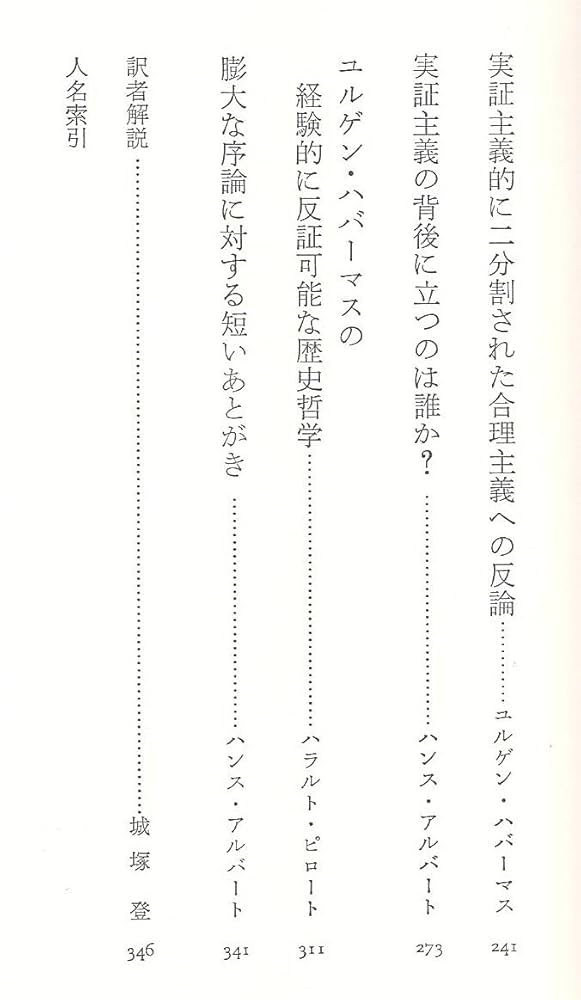 実証主義的に二分割された合理主義への反論…………ユルゲン・ハバーマス 241
実証主義の背後に立つのは誰か？…………………………ハンス・アルバート 273
ユルゲン・ハバーマスの
経験的に反証可能な歴史哲学…………………………ハラルト・ピロート 311
膨大な序論に対する短いあとがき…………………………ハンス・アルバート 341
訳者解説…………………………………………………………………城塚登 346
人名索引